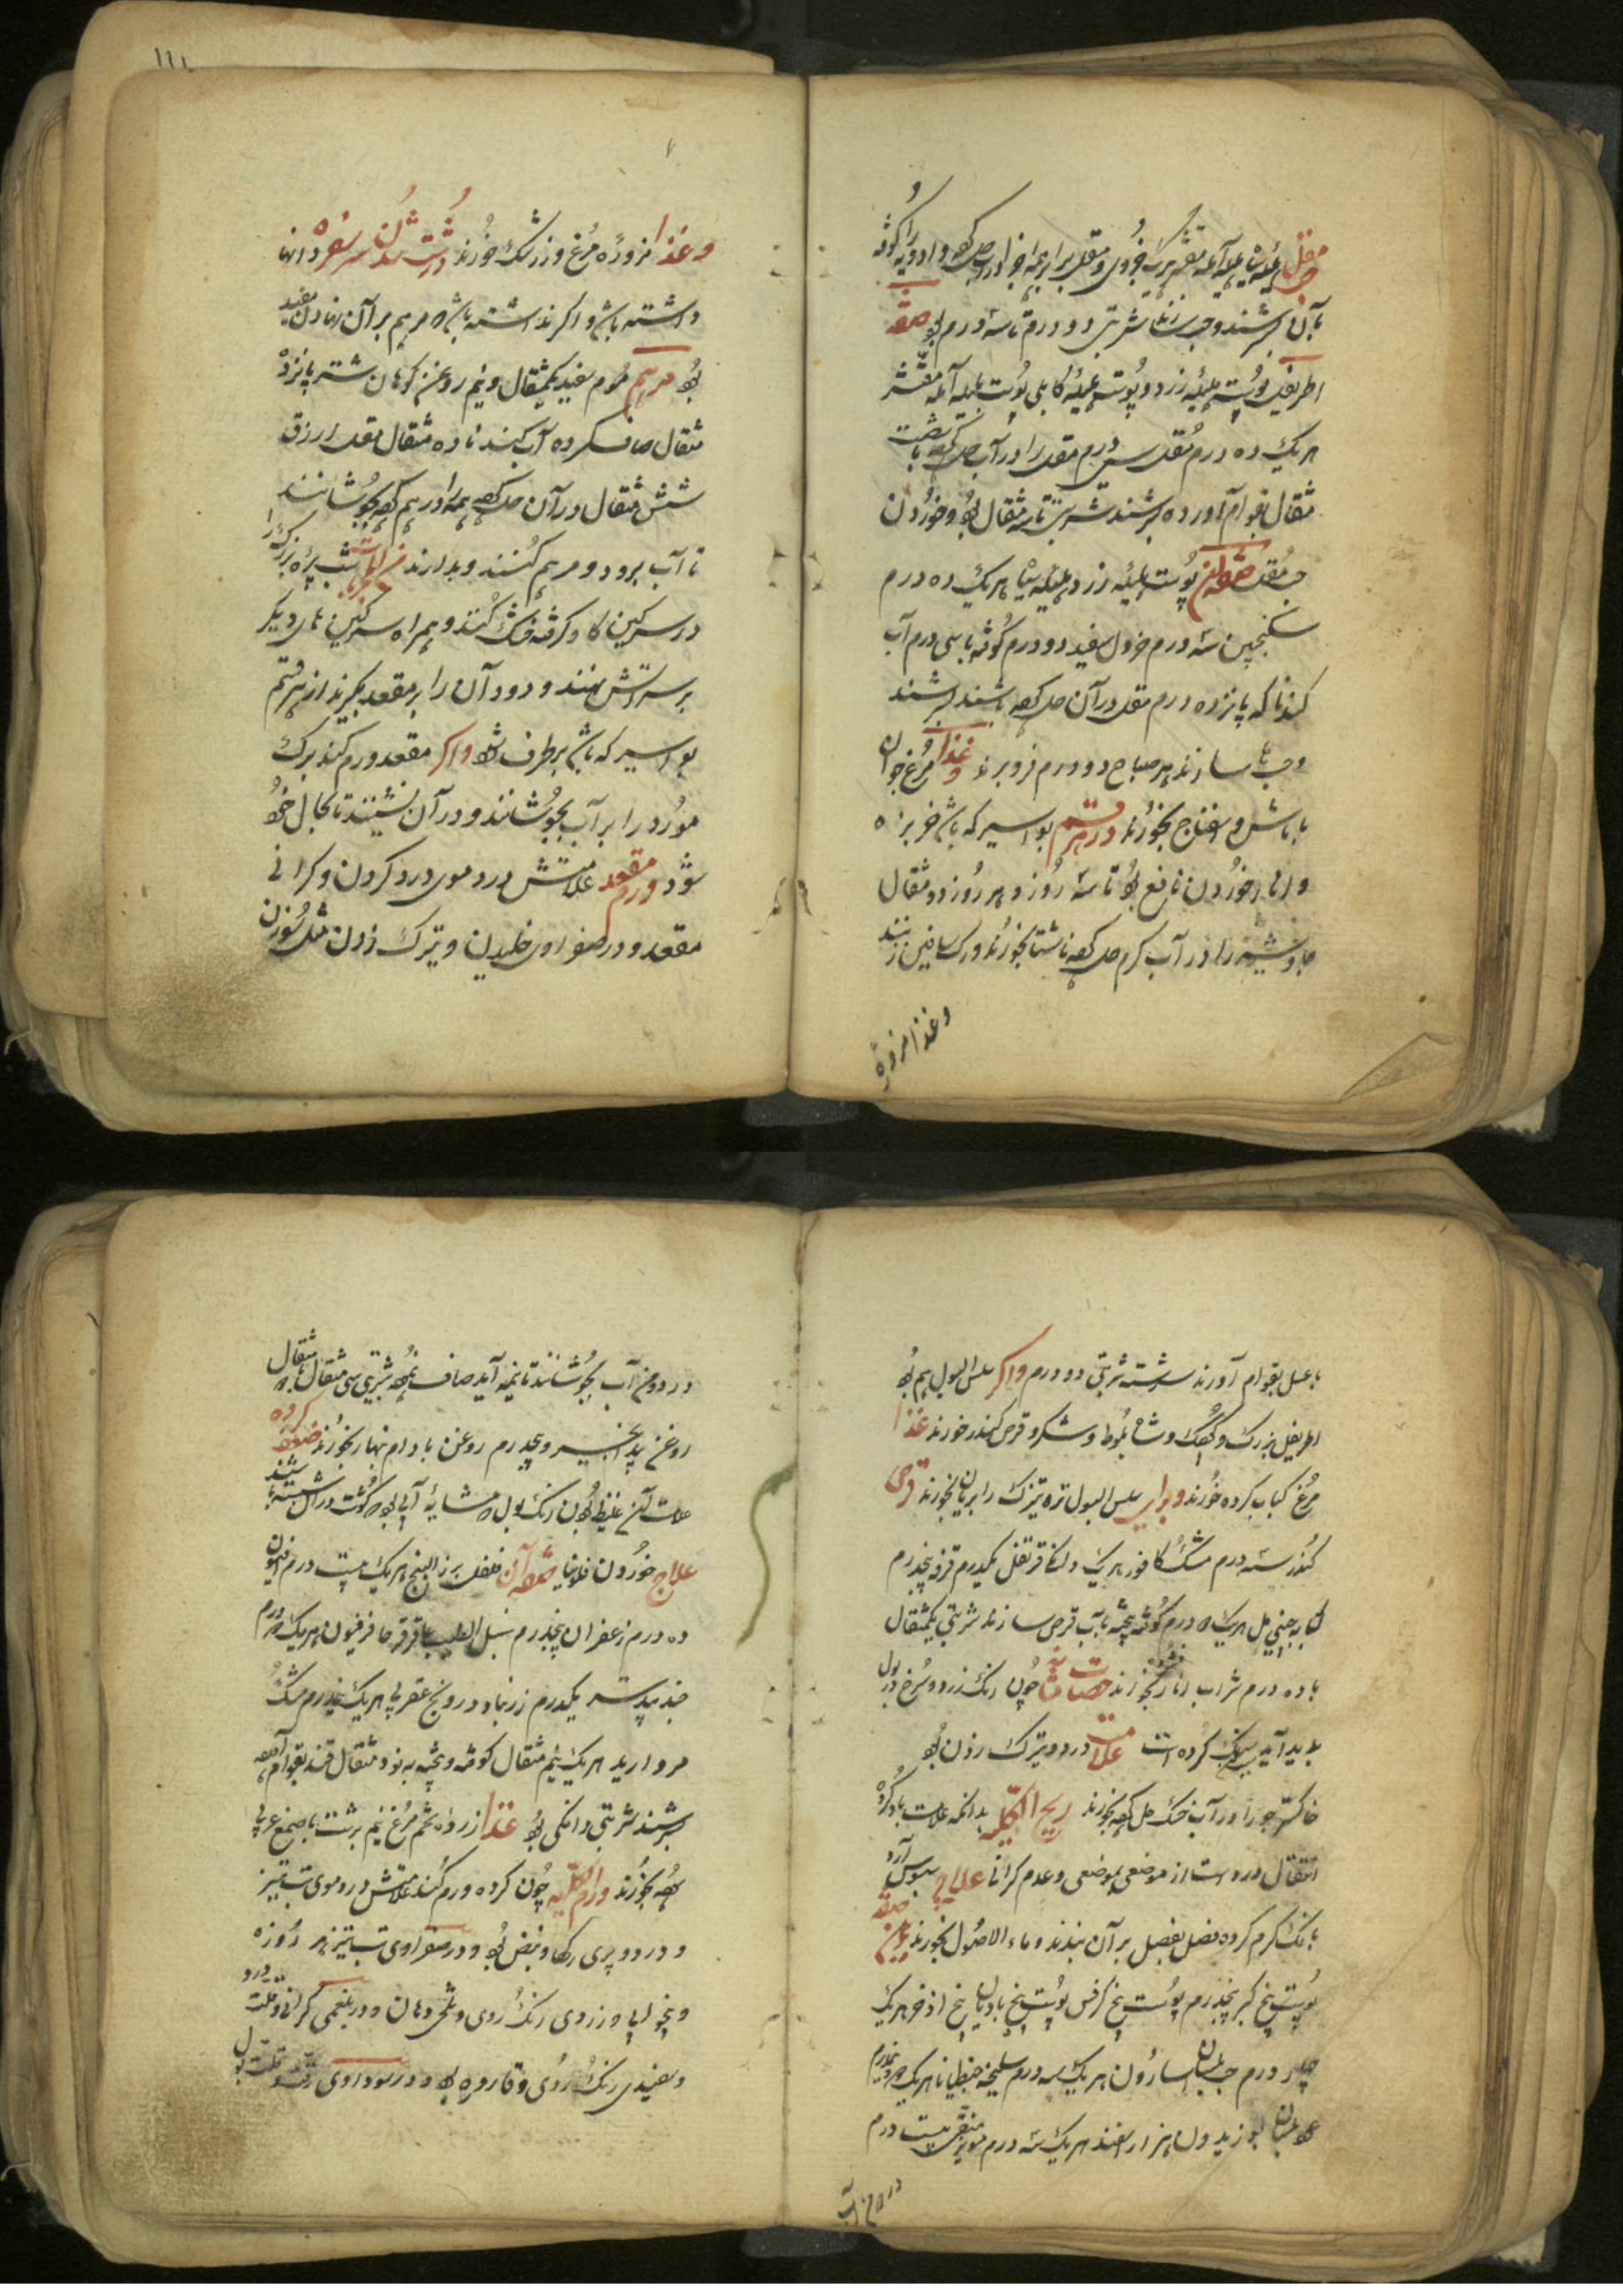 مقل هلیله سیاه بلیله آمله مقشر هر یک جزوی و مقل برابر همه اجزا در آب حل کرده و ادویه را کوفته
بآن بسرشند و حب سازند شربتی دو درم تا سه درم بود صفت
اطریفل پوست هلیله زرد و پوست هلیله کابلی پوست بلیله آمله مقشر
هر یک ده درم مقل سی درم مقل را در آب حل کرده با شصت
مثقال بقوام آورده بسرشند شربتی تا سه مثقال بود و خوردن
حب مقل صفت آن پوست هلیله زرد هلیله سیاه هر یک ده درم
سکنجبین سه درم خردل سفید دو درم کوفته با سی درم آب
کندنا که پانزده درم مقل در آن حل کرده باشند بسرشند
و حبها سازند هر صباح دو درم فرو برند و غذا مرغ جوان
با ماش و اسفناج بخورند در هر قسم بواسیر که باشد خربزه
و انار خوردن نافع بود تا سه روز و هر روز دو مثقال
جاوشیر را در آب گرم حل کرده ناشتا بخورند و رگ باسلیق زنند
و غذا مزوره
و غذا مزوره مرغ و زرشک خورند
داشته باشد و اگر نداشته باشد مرهم بر آن نهادن مفید
بود مرهم موم سفید یک مثقال و نیم روغن کوهان شتر پانزده
مثقال صاف کرده آب کندنا ده مثقال مقل ازرق
شش مثقال در آن حل کرده همه را در هم کرده بجوشانند
تا آب برود و مرهم کنند و بدارند شب پره بزرگ را
در سرگین گاو گرفته خشک کنند و همراه سرگین های دیگر
بر سر آتش نهند و دود آن را بر مقعد گیرند از هر قسم
بواسیر که باشد برطرف شود و اگر مقعد ورم کند برگ
مورد را بر آب بجوشانند و در آن نشینند تا بحال خود
شود ورم مقعد علامتش درد موی درد کردن و گرانی
مقعد و در صفراوی خلیدن و تیرک زدن مثل سوزن
با عسل بقوام آورند سرشته شربتی دو درم و اگر سلس البول هم بود
اطریفل بزرگ و کهنک و شاه بلوط و شکر و قرص کندر خورند غذا
مرغ کباب کرده خورند و برای سلس البول تره تیزک را بریان بخورند قرص
کندر سه درم مشک کافور هر یک دانگ قرنفل یکدرم قرفه پنجدرم
کبابه چینی هل هر یک درم کوفته بیخته بآب قرص سازند شربتی یکمثقال
با ده درم شراب انار بخورند حصات مثانه چون رنگ زرد و سرخ در بول
پدید آید سنگ کرده است علامت درد و تیرک زدن بود
خاکستر جو را در آب خسک حل کرده بخورند ریح الکلیه بدانکه علامت باد گرده
انتقال درد است از موضعی بموضعی و عدم گرانی علاج سبوس آرد
با نمک گرم کرده فصل بفصل بر آن بندند و ماء الاصول بخورند باین صفت
پوست بیخ کبر پنجدرم پوست بیخ کرفس پوست بیخ بادیان بیخ اذخر هر یک
چهار درم حب بلسان اسارون هر یک سه درم سلیخه جنطیانا هر یک
عود بلسان بوزیدان هزار اسفند هر یک سه درم مویز منقی بیست درم
در دو من آب
در دو من آب بجوشانند تا نیمه آید صاف نموده شربتی سی مثقال با مثقال
روغن بید انجیر و پنجدرم روغن بادام نهار بخورند ضعف گرده
علامت آن غلیظ بودن رنگ بول مشابه آبی بود که گوشت در آن شسته باشند
علاج خوردن فلونیا صفت آن فلفل بزر البنج هر یک بیست درم افیون
ده درم زعفران پنجدرم سنبل الطیب عاقرقرحا فرفیون هر یک درم
جند بیدستر یکدرم زرنباد درونج عقربی هر یک نیمدرم مشک
مروارید هر یک نیم مثقال کوفته و بیخته به نود مثقال قند بقوام آمده
بسرشند شربتی دانگی بود غذا زرده تخم مرغ نیم برشت با صمغ عربی
بخورند ورم الکلیه چون گرده ورم کند علامتش در دموی تب تیز
و درد و پری رگها و نبض بود و در صفراوی تب تیز هر روزه
و بیخوابی و زردی رنگ روی و تلخی دهان و در بلغمی گرانی و قلت درد
و سفیدی رنگ روی و قاروره بود و در سوداوی رقت و قلت بول